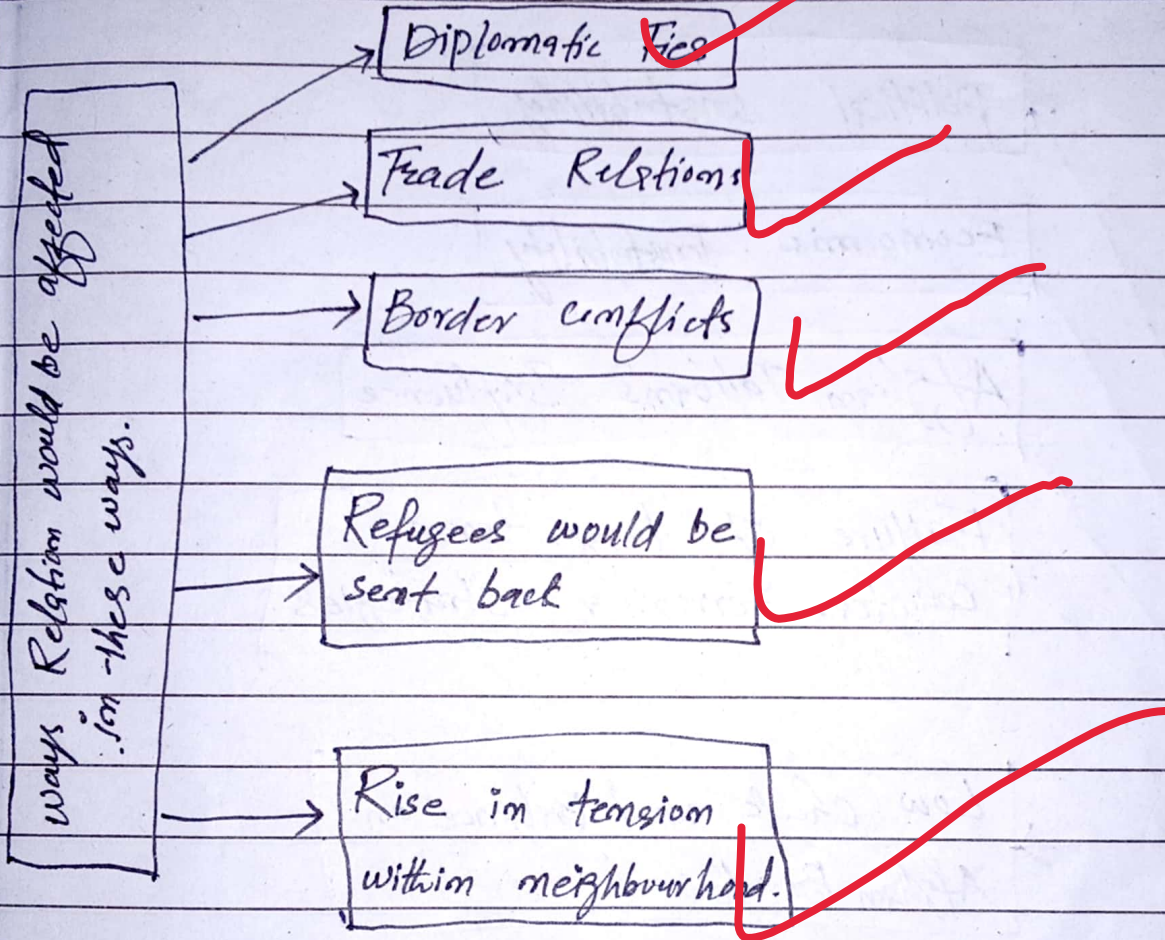 Ways Relation would be affected
in these ways.
Diplomatic Ties
Trade Relations
Border conflicts
Refugees would be
sent back
Rise in tension
within neighbourhood.